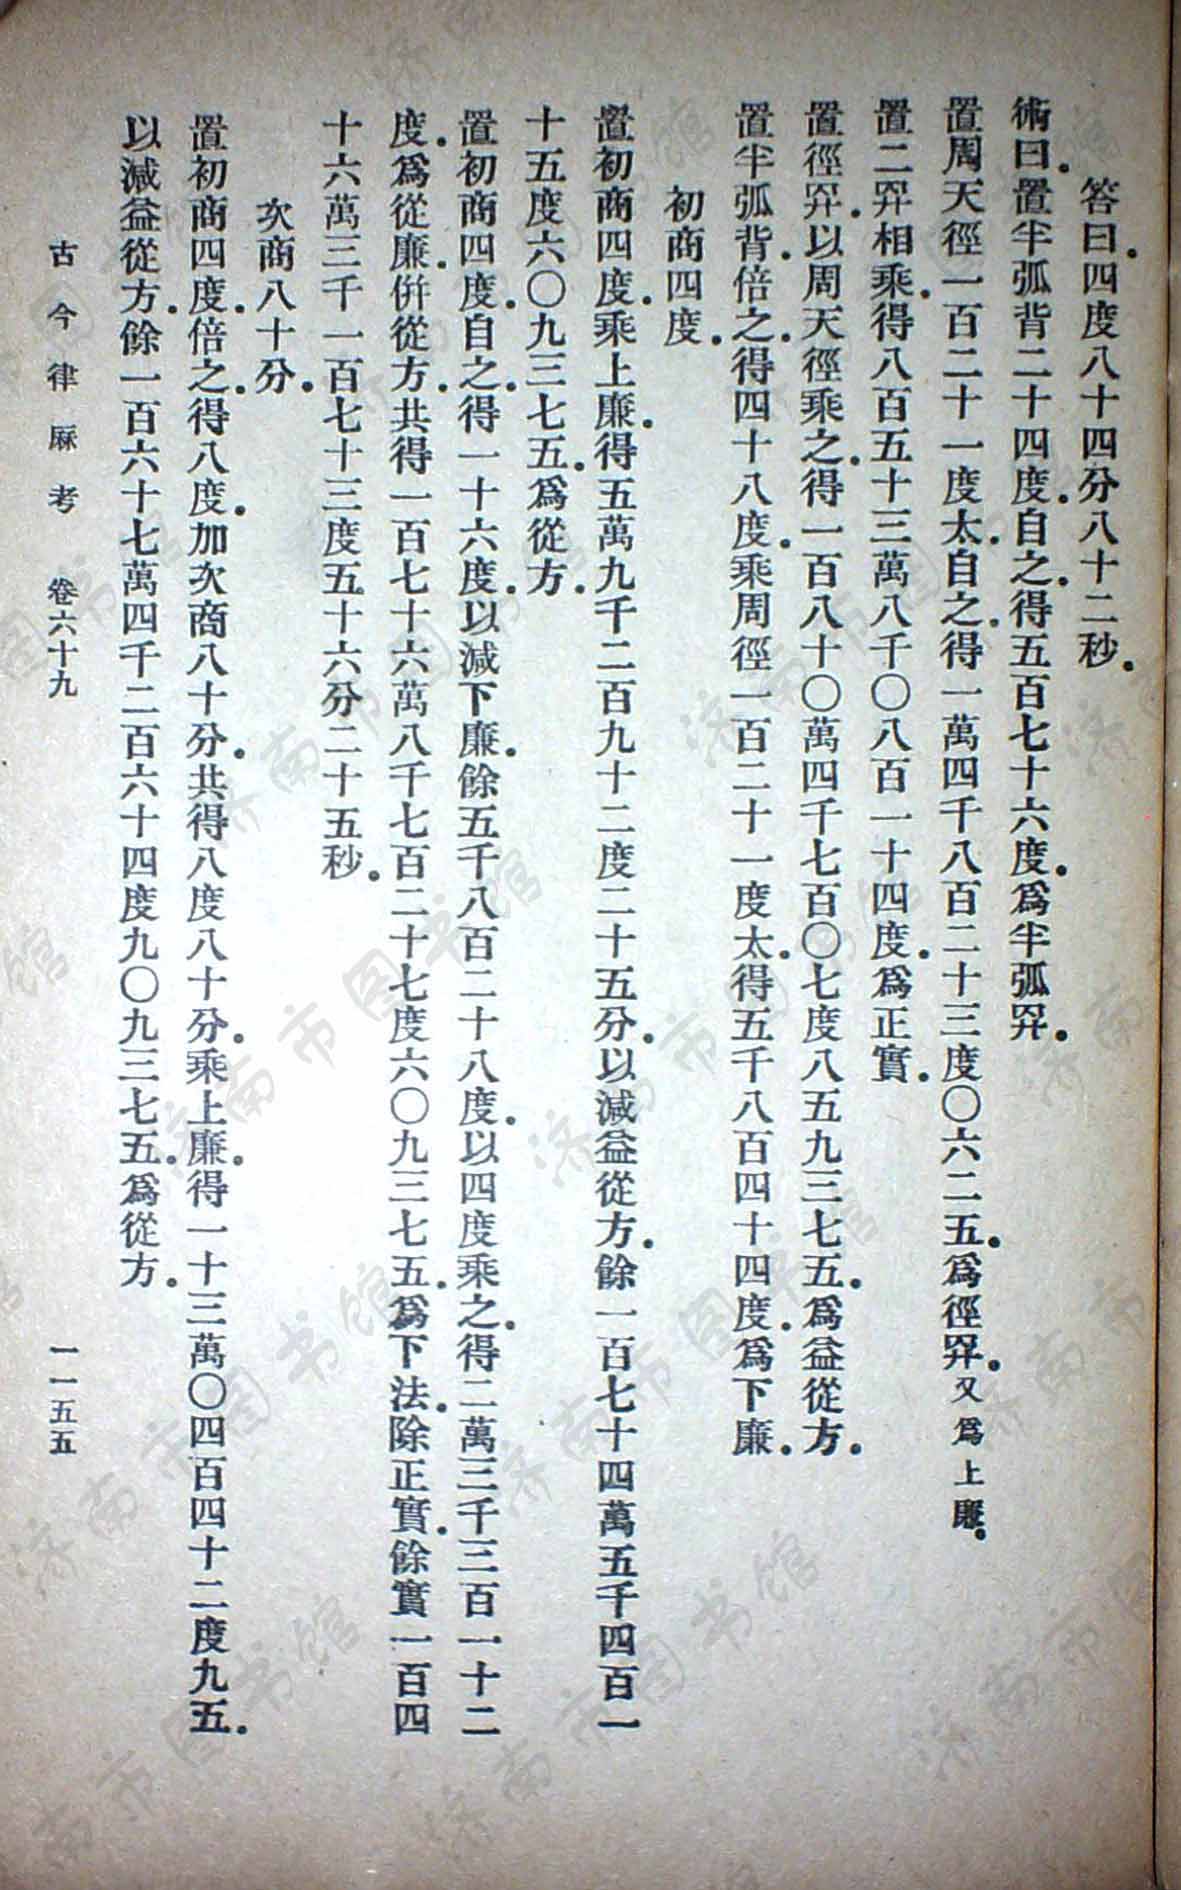 答曰。四度八十四分八十二秒。
術曰。置半弧背二十四度。自之。得五百七十六度。爲半弧羃。
置周天徑一百二十一度太。自之。得一萬四千八百二十三度〇六二五。爲徑羃。又爲上廉。
置二羃相乘。得八百五十三萬八千〇八百一十四度。爲正實。
置徑羃。以周天徑乘之。得一百八十〇萬四千七百〇七度八五九三七五。爲益從方。
置半弧背。倍之。得四十八度。乘周徑一百二十一度太。得五千八百四十四度。爲下廉。
初商四度。
置初商四度。乘上廉。得五萬九千二百九十二度二十五分。以減益從方。餘一百七十四萬五千四百一
十五度六〇九三七五。爲從方。
置初商四度。自之。得一十六度。以減下廉。餘五千八百二十八度。以四度乘之。得二萬三千三百一十二
度。爲從廉。倂從方。共得一百七十六萬八千七百二十七度六〇九三七五。爲下法。除正實。餘實一百四
十六萬三千一百七十三度五十六分二十五秒。
次商八十分。
置初商四度。倍之。得八度。加次商八十分。共得八度八十分。乘上廉。得一十三萬〇四百四十二度九五。
以減益從方。餘一百六十七萬四千二百六十四度九〇九三七五。爲從方。
古今律厤考 卷六十九 一一五五
济南市图书馆